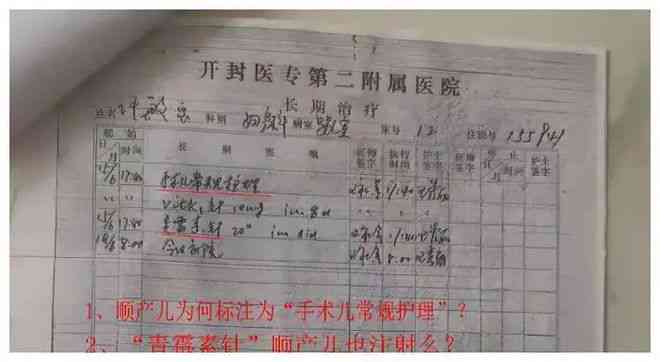 开封医专第二附属医院
长期治疗
姓名 科别 妇产科 病室 婴室 床号 12 住院号 155841
开始 长期医嘱 医师签字 执行时间 护士签字 医师签字 停止 护士签字
日/月 时间 日/月 时间
15/6 17:40 手术儿常规护理
" " Vitk, 针 10mg im qd
15/6 17:40 青霉素针 20" im bid
18/6 8:00 今日出院 8:00
1、顺产儿为何标注为“手术儿常规护理”？
2、“青霉素针”顺产儿也注射么？